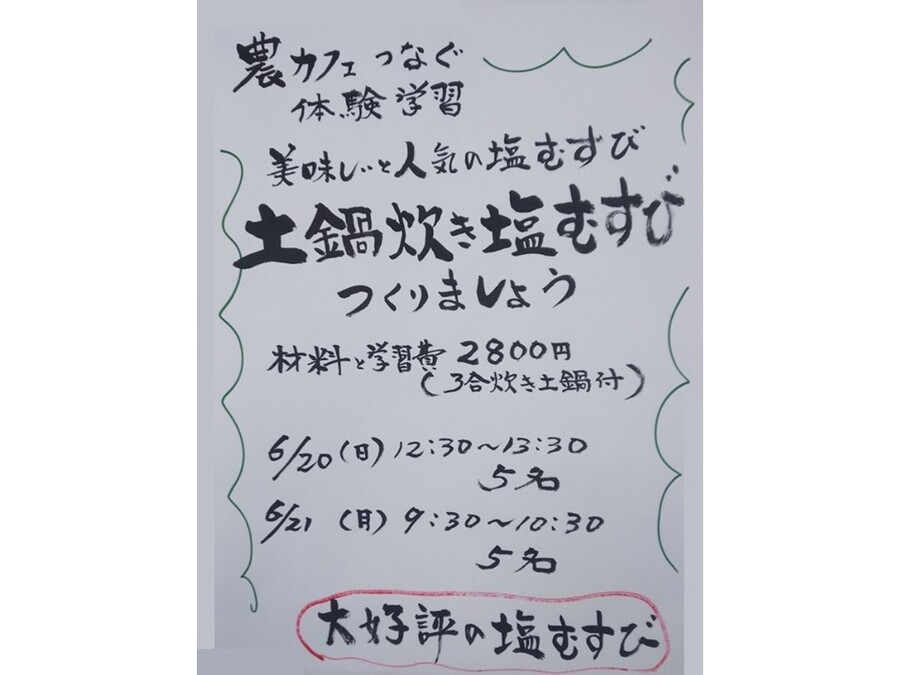 農カフェつなぐ
体験学習
美味しいと人気の塩むすび
土鍋炊き塩むすび
つくりましょう
材料と学習費 2800円
(3合炊き土鍋付)
6/20(日)12:30~13:30
5名
6/21(月)9:30~10:30
5名
大好評の塩むすび